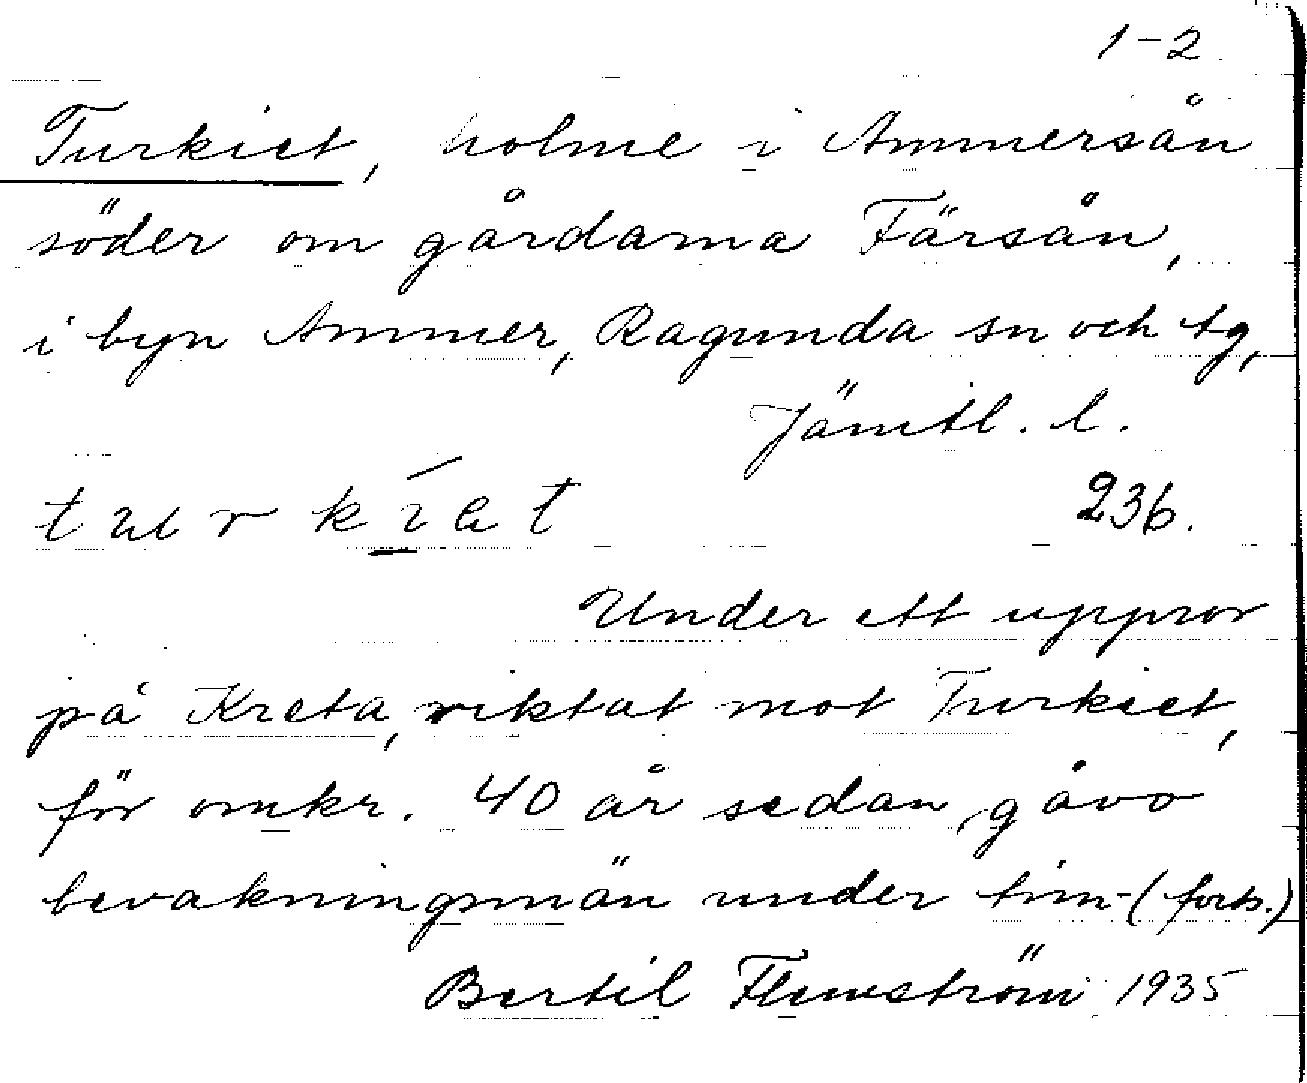 1-2
Turkiet, holme i Ammersån
söder om gårdarna Färsån,
i byn Ammer, Ragunda sn och tg,
Jämtl. l.
turkíet
236.
Under ett uppror
på Kreta, riktat mot Turkiet,
för omkr. 40 år sedan, gåvo
bevakningsmän under tim- (forts.)
Bertil Flemström 1935